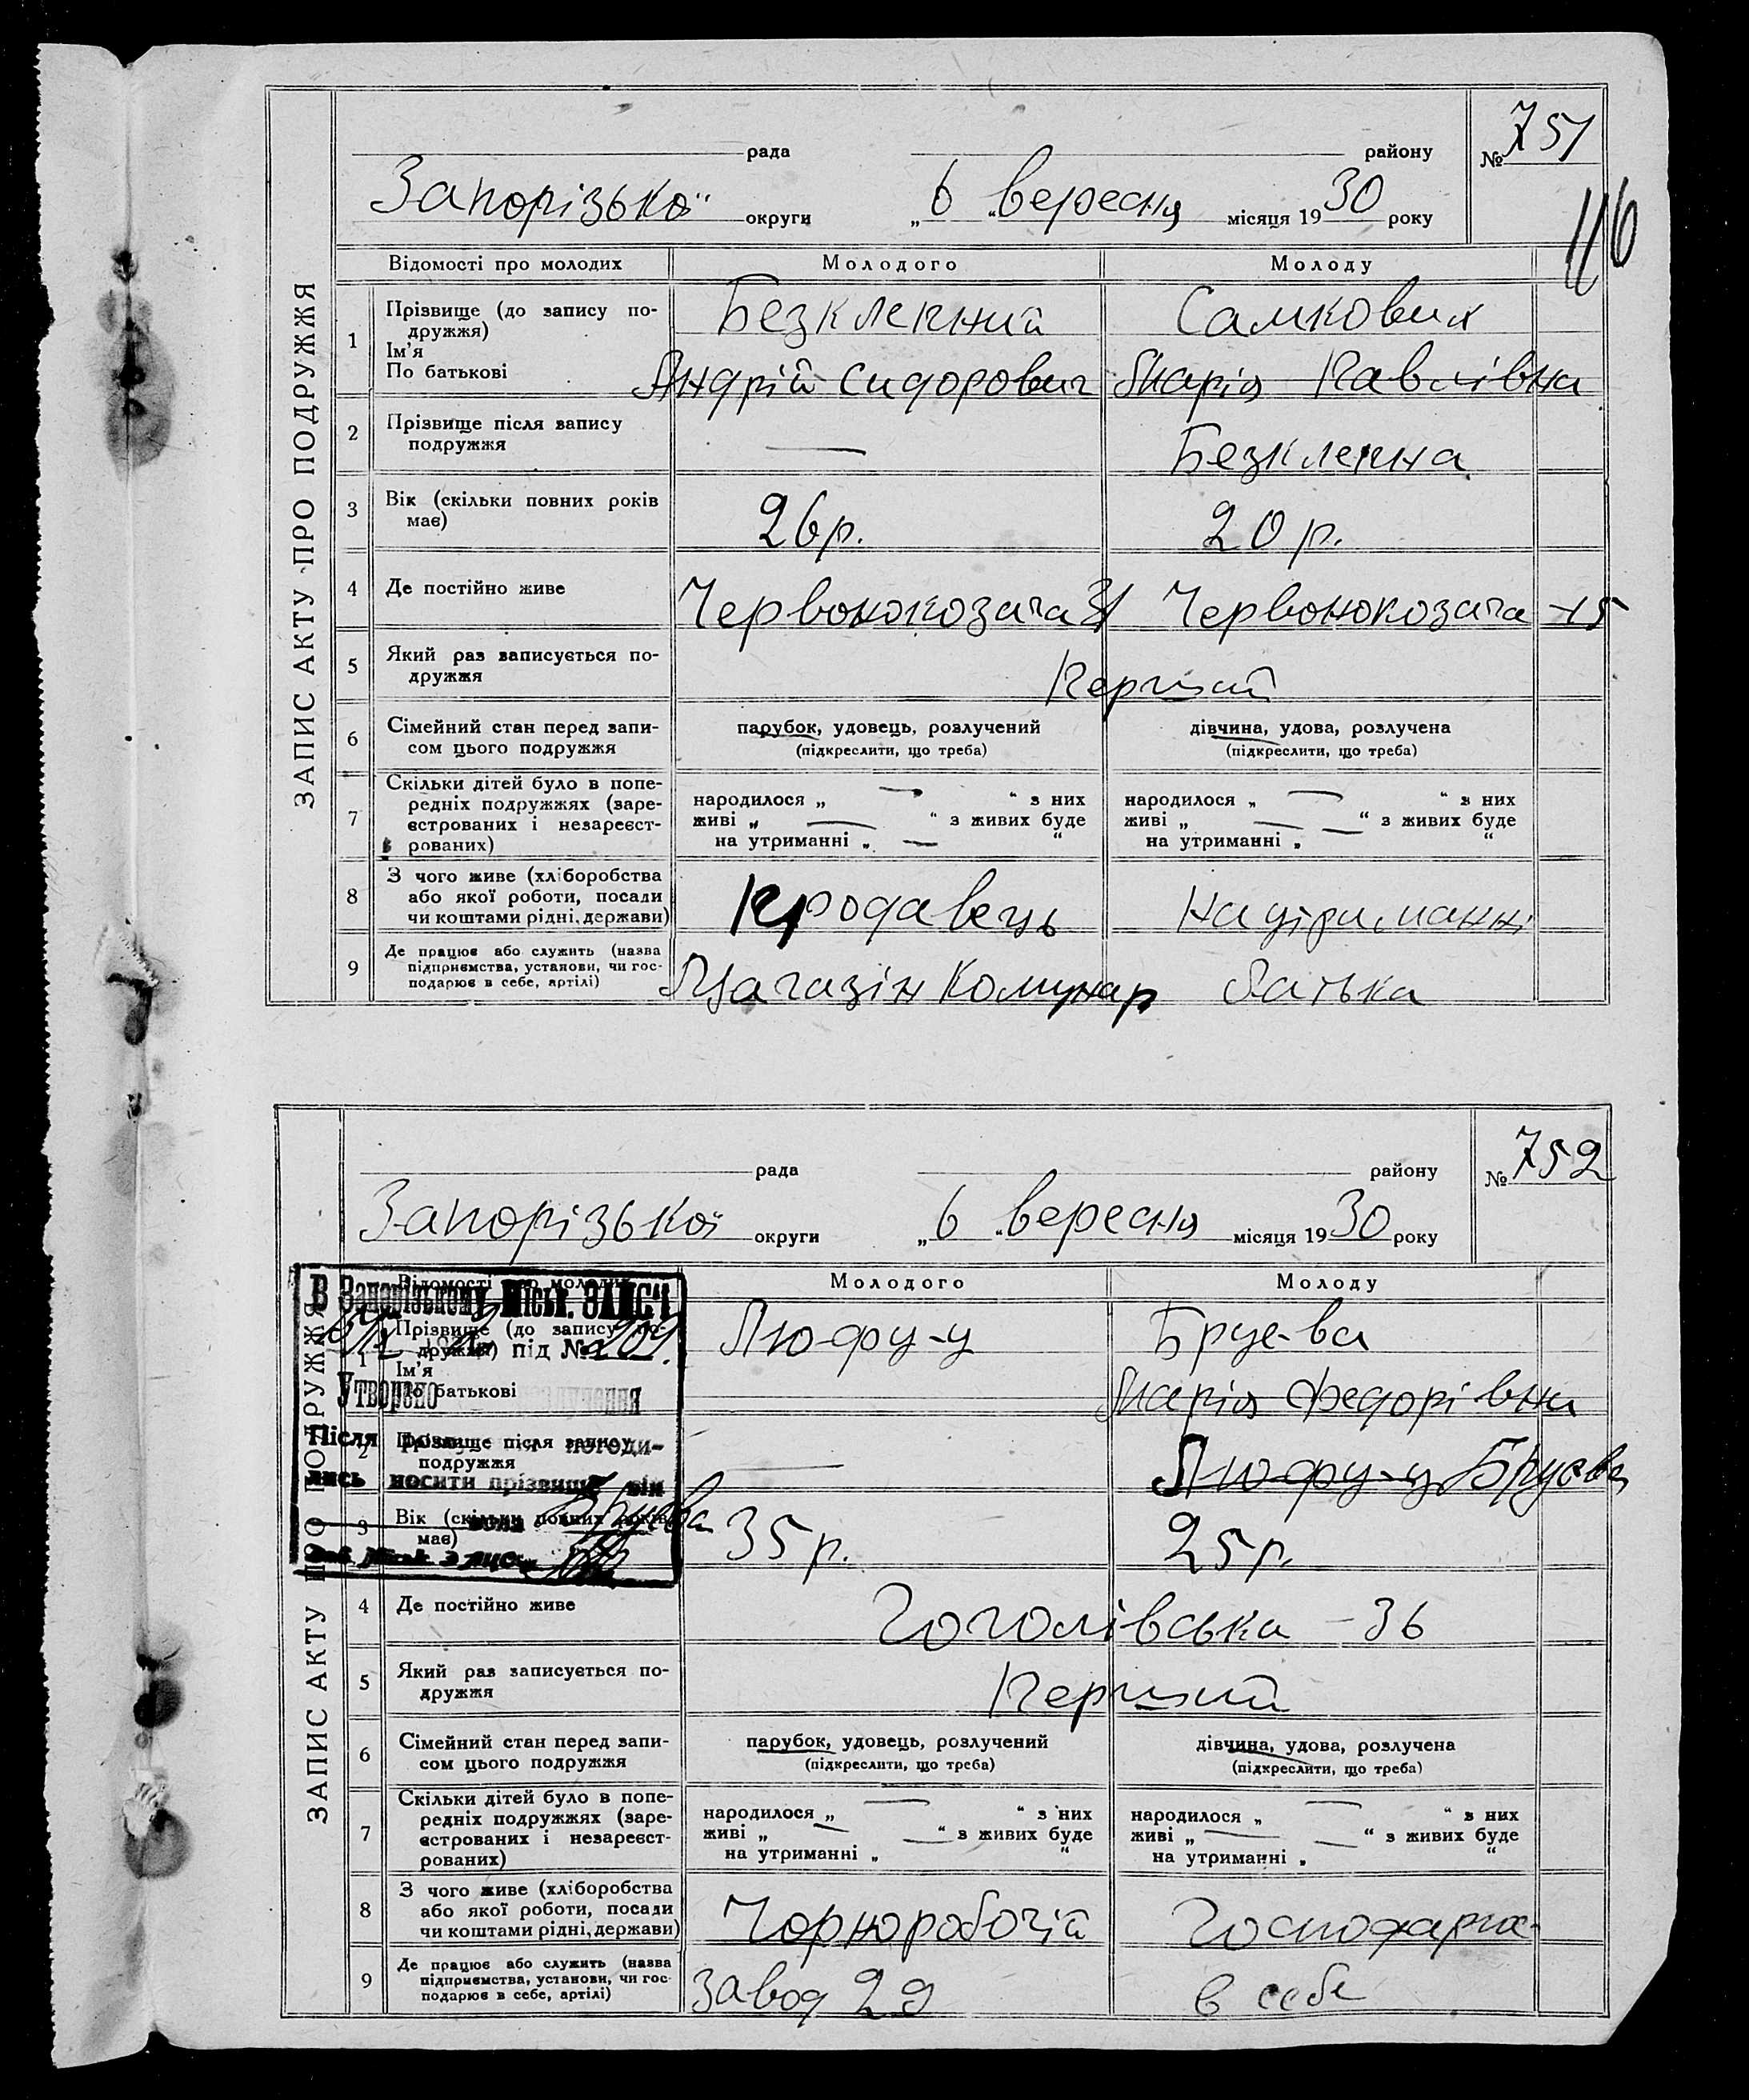 ЗАПИС АКТУ ПРО ПОДРУЖЖЯ
рада району № 751
Запорізької округи „6“ вересня місяця 1930 року
116
Відомості про молодих Молодого Молоду
1 Прізвище (до запису по-
дружжя)
Ім'я
По батькові
Безклепний Самкових
Андрій Сидорович Марія Павлівна
2 Прізвище після запису
подружжя
— Безклепна
3 Вік (скільки повних років
має)
26 р. 20 р.
4 Де постійно живе
Червонокозача 31 Червонокозача 15
5 Який раз записується по-
дружжя
Перший
6 Сімейний стан перед запи-
сом цього подружжя
парубок, удовець, розлучений дівчина, удова, розлучена
(підкреслити, що треба) (підкреслити, що треба)
7 Скільки дітей було в попе-
редніх подружжях (заре-
єстрованих і незареєст-
рованих)
народилося „ — “ з них народилося „ — “ з них
живі „ — “ з живих буде живі „ — “ з живих буде
на утриманні „ — “ на утриманні „ — “
8 З чого живе (хліборобства
або якої роботи, посади
чи коштами рідні, держави)
Продавець На утриманні
9 Де працює або служить (назва
підприємства, установи, чи гос-
подарює в себе, артілі)
Магазін Комунар Батька
ЗАПИС АКТУ ПРО ПОДРУЖЖЯ
рада району № 752
Запорізької округи „6“ вересня місяця 1930 року
Відомості про молодих Молодого Молоду
В Запорізькому міськ. ЗАПС'і
під № 209.
Утворено
Після погоди-
лись носити прізвище він
вона Бруєва
1 Прізвище (до запису по-
дружжя)
Ім'я
По батькові
Лю-фу-у Бруєва
Марія Федорівна
2 Прізвище після запису
подружжя
— Лю-фу-у Бруєва
3 Вік (скільки повних років
має)
35 р. 25 р.
4 Де постійно живе
Гоголівська - 36
5 Який раз записується по-
дружжя
Перший
6 Сімейний стан перед запи-
сом цього подружжя
парубок, удовець, розлучений дівчина, удова, розлучена
(підкреслити, що треба) (підкреслити, що треба)
7 Скільки дітей було в попе-
редніх подружжях (заре-
єстрованих і незареєст-
рованих)
народилося „ — “ з них народилося „ — “ з них
живі „ — “ з живих буде живі „ — “ з живих буде
на утриманні „ “ на утриманні „ “
8 З чого живе (хліборобства
або якої роботи, посади
чи коштами рідні, держави)
Чорноробочій Господарка
9 Де працює або служить (назва
підприємства, установи, чи гос-
подарює в себе, артілі)
Завод 29 в себе